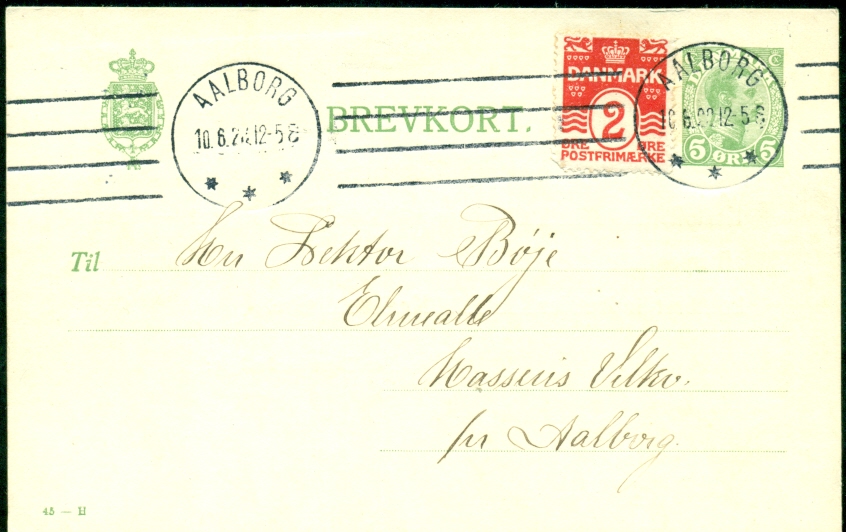 AALBORG
10.6.22.12-5 E
BREVKORT.
DANMARK
2
ØRE ØRE
POSTFRIMÆRKE
AALBORG
10.6.22.12-5 E
5 ØRE 5
Til Hr. Lektor Bøje
Elmealle
Hasseris Villkv.
pr Aalborg.
45 — H